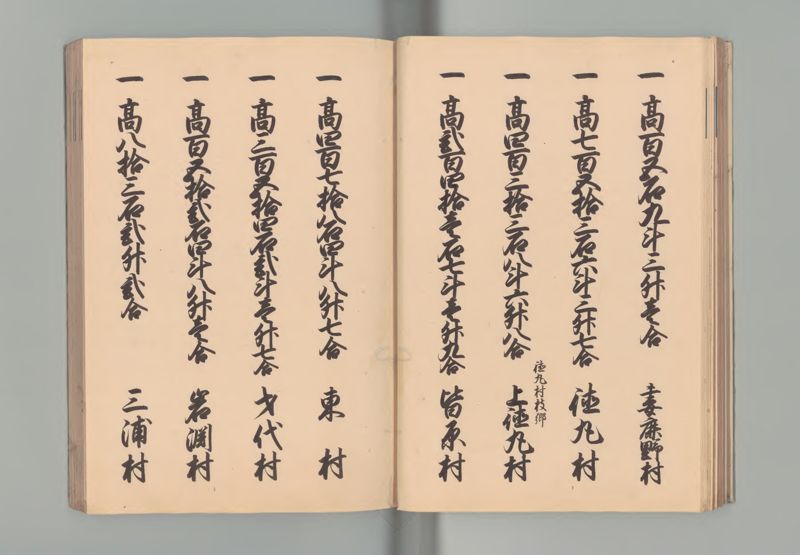 一 高百五石九斗三升壱合 麻野村
一 高七百五拾三石六斗三升七合 徳丸村
一 高四百三拾三石八斗六升八合 徳丸村枝郷 上徳丸村
一 高弐百四拾壱石七斗壱升九合 皆原村
一 高四百七拾八石四斗八升七合 東村
一 高三百五拾四石弐斗壱升七合 才代村
一 高百五拾弐石四斗八升壱合 岩淵村
一 高八拾三石弐升弐合 三浦村